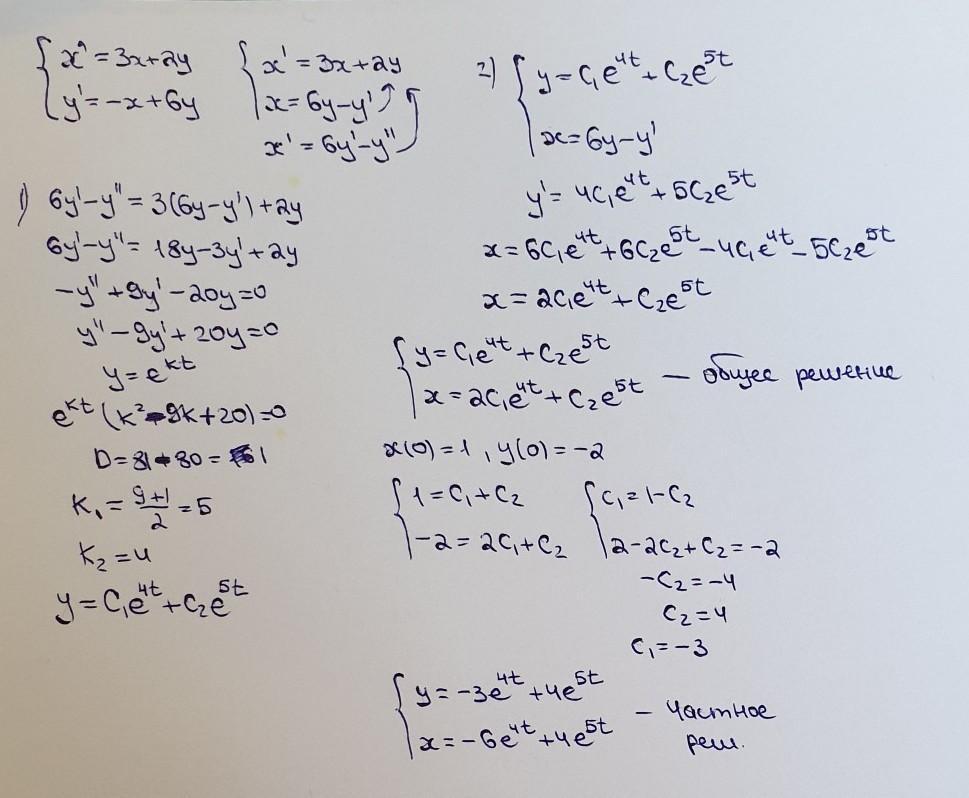 { x' = 3x+2y
y' = -x+6y
{ x' = 3x+2y
x = 6y-y'
x' = 6y'-y''
1) 6y'-y'' = 3(6y-y')+2y
6y'-y'' = 18y-3y'+2y
-y''+9y'-20y=0
y''-9y'+20y=0
y=e^{kt}
e^{kt}(k²-9k+20)=0
D=81-80=1
K₁=\frac{9+1}{2}=5
K₂=4
y=C₁e^{4t}+C₂e^{5t}
2) { y=C₁e^{4t}+C₂e^{5t}
x=6y-y'
y'=4C₁e^{4t}+5C₂e^{5t}
x=6C₁e^{4t}+6C₂e^{5t}-4C₁e^{4t}-5C₂e^{5t}
x=2C₁e^{4t}+C₂e^{5t}
{ y=C₁e^{4t}+C₂e^{5t}
x=2C₁e^{4t}+C₂e^{5t} — общее решение
x(0)=1, y(0)=-2
{ 1=C₁+C₂
-2=2C₁+C₂
{ C₁=1-C₂
2-2C₂+C₂=-2
-C₂=-4
C₂=4
C₁=-3
{ y=-3e^{4t}+4e^{5t}
x=-6e^{4t}+4e^{5t} — частное
реш.